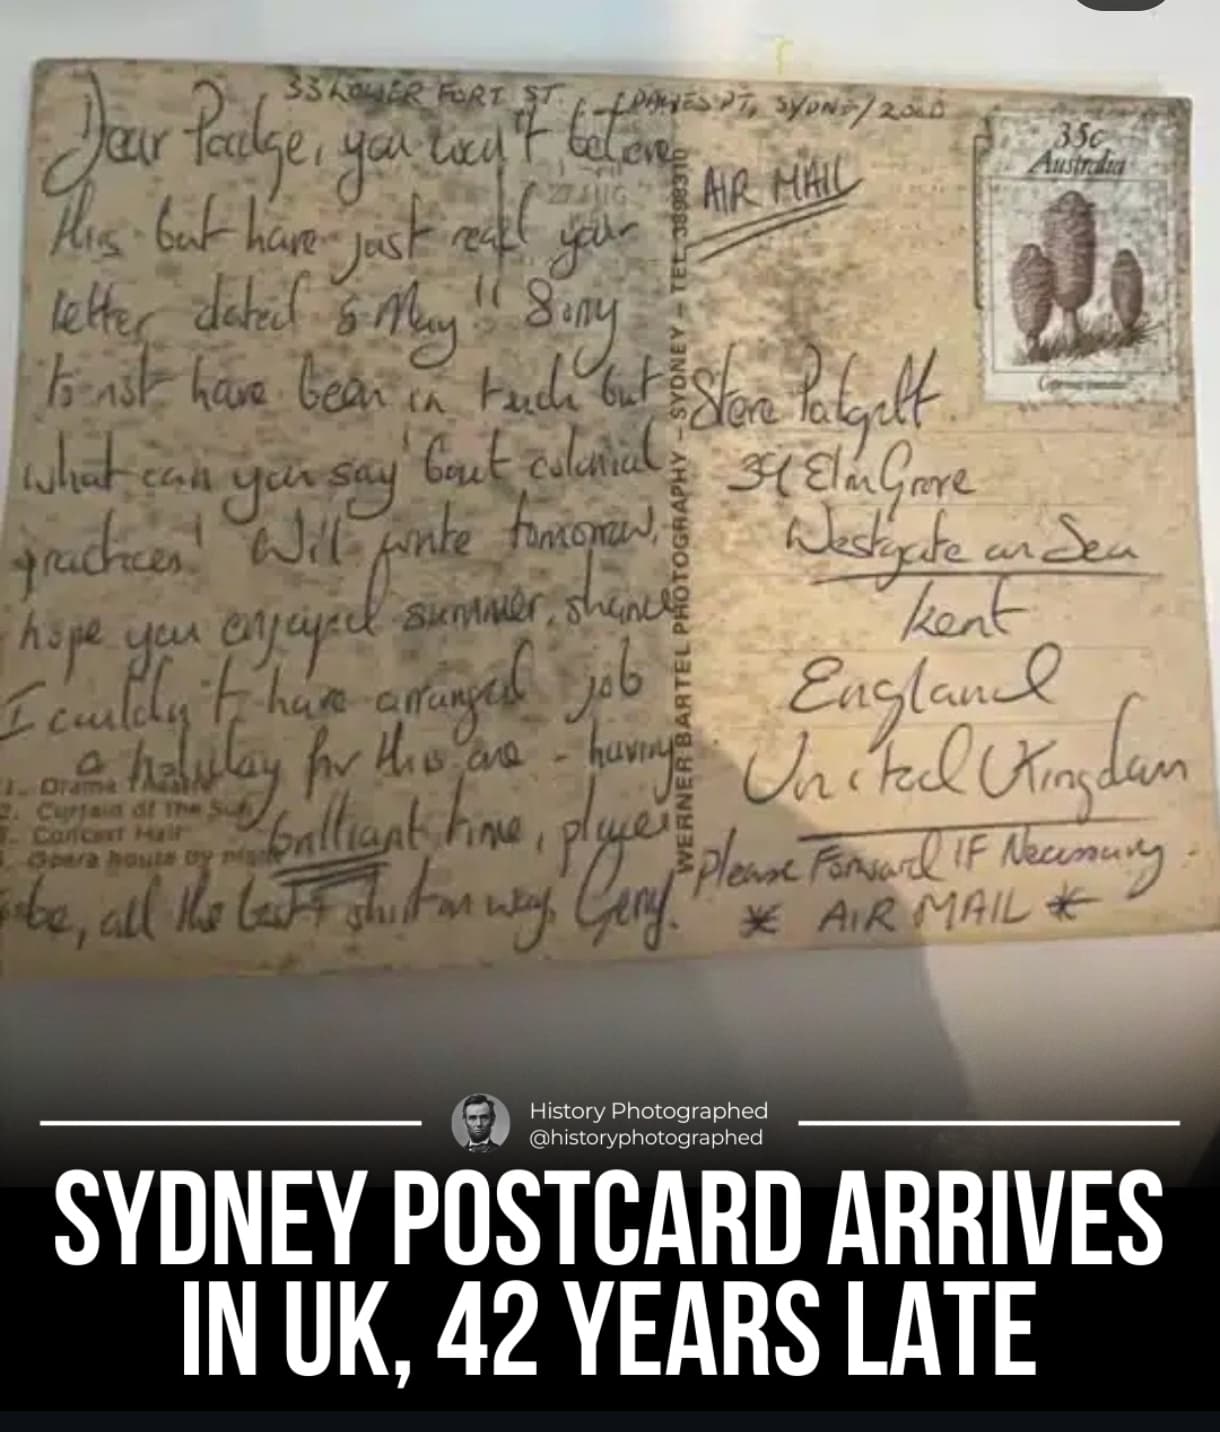 33 LOWER FORT ST. DAWES PT, SYDNEY 2000
Dear Padge, you won't believe
this but have just rec'd your
letter dated 5 May!! Sorry
to not have been in touch but
what can you say 'bout colonial
practices! Will write tomorrow,
hope you enjoyed summer, shame
I couldn't have arranged job
a holiday for this one - having
brilliant time, place
be, all the best & shirt on way, Gerry.
1. Drama Theatre
2. Curtain of the Sun
3. Concert Hall
4. Opera house by night
WERNER BARTEL PHOTOGRAPHY - SYDNEY - TEL. 3898310
AIR MAIL
35c
Australia
Steve Padgett
34 Elm Grove
Westgate on Sea
Kent
England
United Kingdom
Please Forward IF Necessary.
* AIR MAIL *
History Photographed
@historyphotographed
SYDNEY POSTCARD ARRIVES
IN UK, 42 YEARS LATE